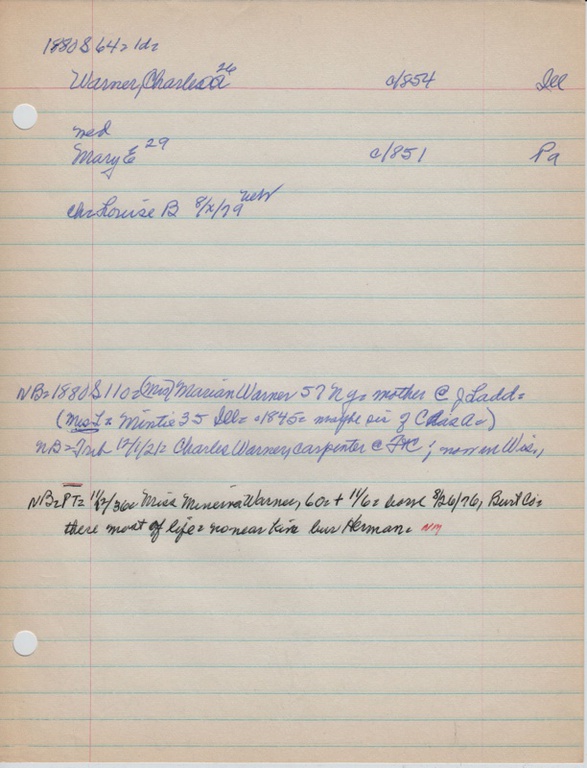 1880 S 64 = 1d =
Warner, Charles A 26 c/1854 Ill
med
Mary E 29 c/1851 Pa
ch = Louise B 8/x/79 new
NB = 1880 S 110 = (Mrs) Marian Warner 57 N y = mother @ J Ladd =
(Mrs L = Mintie 35 Ill = c1845 = maybe sis of Chas A =)
NB = Trib 12/1/21 = Charles Warner, carpenter @ ; now in Wis.,
NB = PT = 36 = Miss Minerva Warner, 60 = + 11/6 = born 8/26/76, Burt Co =
there most of life = no near kin bur Herman = NM